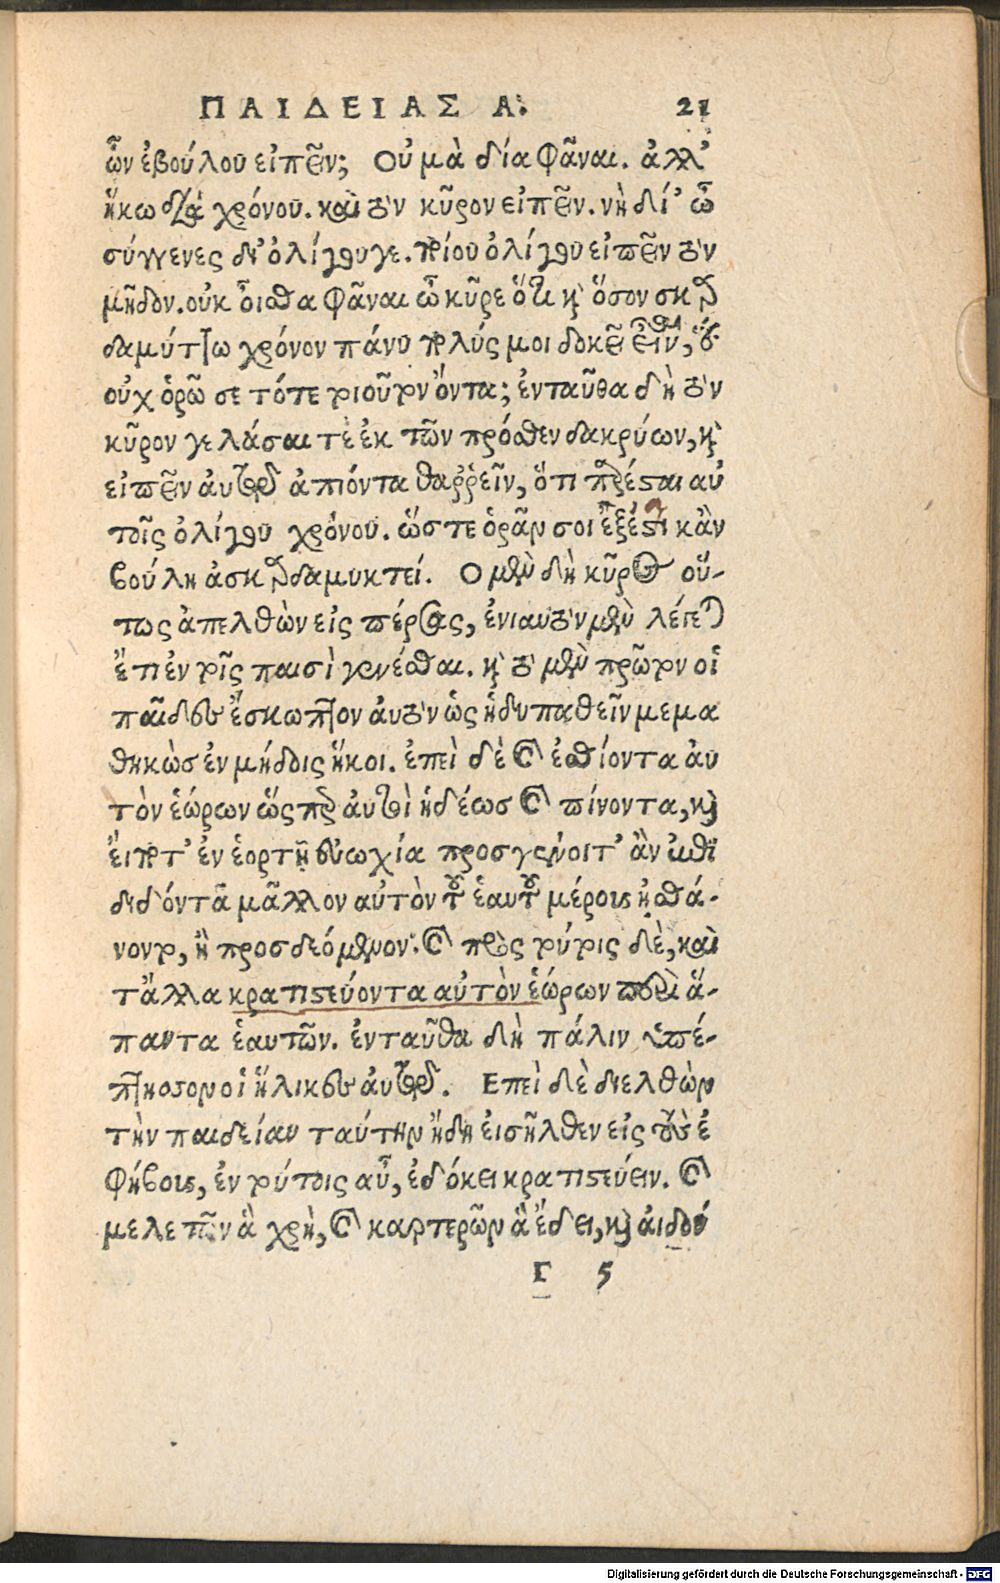 ΠΑΙΔΕΙΑΣ Α. 21
ὧν ἐβούλου εἰπεῖν; Οὐ μὰ δία φᾶναι. ἀλλ’
ἥκω διὰ χρόνου. καὶ τὸν κῦρον εἰπεῖν. νὴ δί’ ὦ
σύγγενες δι’ ὀλίγου γε. ποίου ὀλίγου εἰπεῖν τὸν
μῆδον. οὐκ οἶσθα φᾶναι ὦ κῦρε ὅτι καὶ ὅσον σκαρ
δαμύττω χρόνον πάνυ πολύς μοι δοκεῖ εἶναι, ὅτι
οὐχ ὁρῶ σε τότε τοιοῦτον ὄντα; ἐνταῦθα δὴ τὸν
κῦρον γελάσαι τὲ ἐκ τῶν πρόσθεν δακρύων, καὶ
εἰπεῖν αὐτῷ ἀπιόντα θαῤῥεῖν, ὅτι παρέσται αὐ
τοῖς ὀλίγου χρόνου. ὥστε ὁρᾶν σοι ἐξέσται κἂν
βούλῃ ἀσκαρδαμυκτεί. Ο μὲν δὴ κῦρος οὕ-
τως ἀπελθὼν εἰς πέρσας, ἐνιαυτὸν μὲν λέγεται
ἔτι ἐν τοῖς παισὶ γενέσθαι. καὶ τὸ μὲν πρῶτον οἱ
παῖδες ἔσκωπτον αὐτὸν ὡς ἡδυπαθεῖν μεμα
θηκὼς ἐν μήδοις ἥκοι. ἐπεὶ δὲ καὶ ἐσθίοντα αὐ
τὸν ἑώρων ὥσπερ αὐτοὶ ἡδέωσ καὶ πίνοντα, καὶ
εἴ ποτ’ ἐν ἑορτῇ εὐωχία προσγένοιτ’ ἂν ἐπι
διδόντα μᾶλλον αὐτὸν τοῦ ἑαυτοῦ μέρους ᾐσθά-
νοντο, ἢ προσδεόμενον. καὶ πρὸς τούτοις δὲ, καὶ
τἄλλα κρατιστεύοντα αὐτὸν ἑώρων περὶ ἅ-
παντα ἑαυτῶν. ἐνταῦθα δὴ πάλιν ὑπέ-
πτησσον οἱ ἥλικες αὐτῷ. Επεὶ δὲ διελθὼν
τὴν παιδείαν ταύτην ἤδη εἰσῆλθεν εἰς τοὺς ἐ
φήβους, ἐν τούτοις αὖ, ἐδόκει κρατιστεύειν. καὶ
μελετῶν ἃ χρὴ, καὶ καρτερῶν ἃ ἔδει, καὶ αἰδού
Γ 5
Digitalisierung gefördert durch die Deutsche Forschungsgemeinschaft - DFG